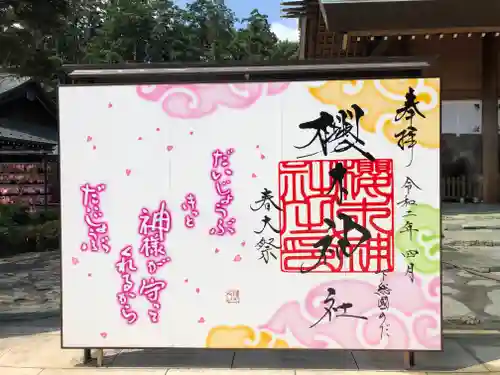 奉拝
令和二年四月
櫻木神社
櫻木神
社之印
下総國のだ
春大祭
だいじょうぶ
きっと
神様が守って
くれるから
だいじょうぶ